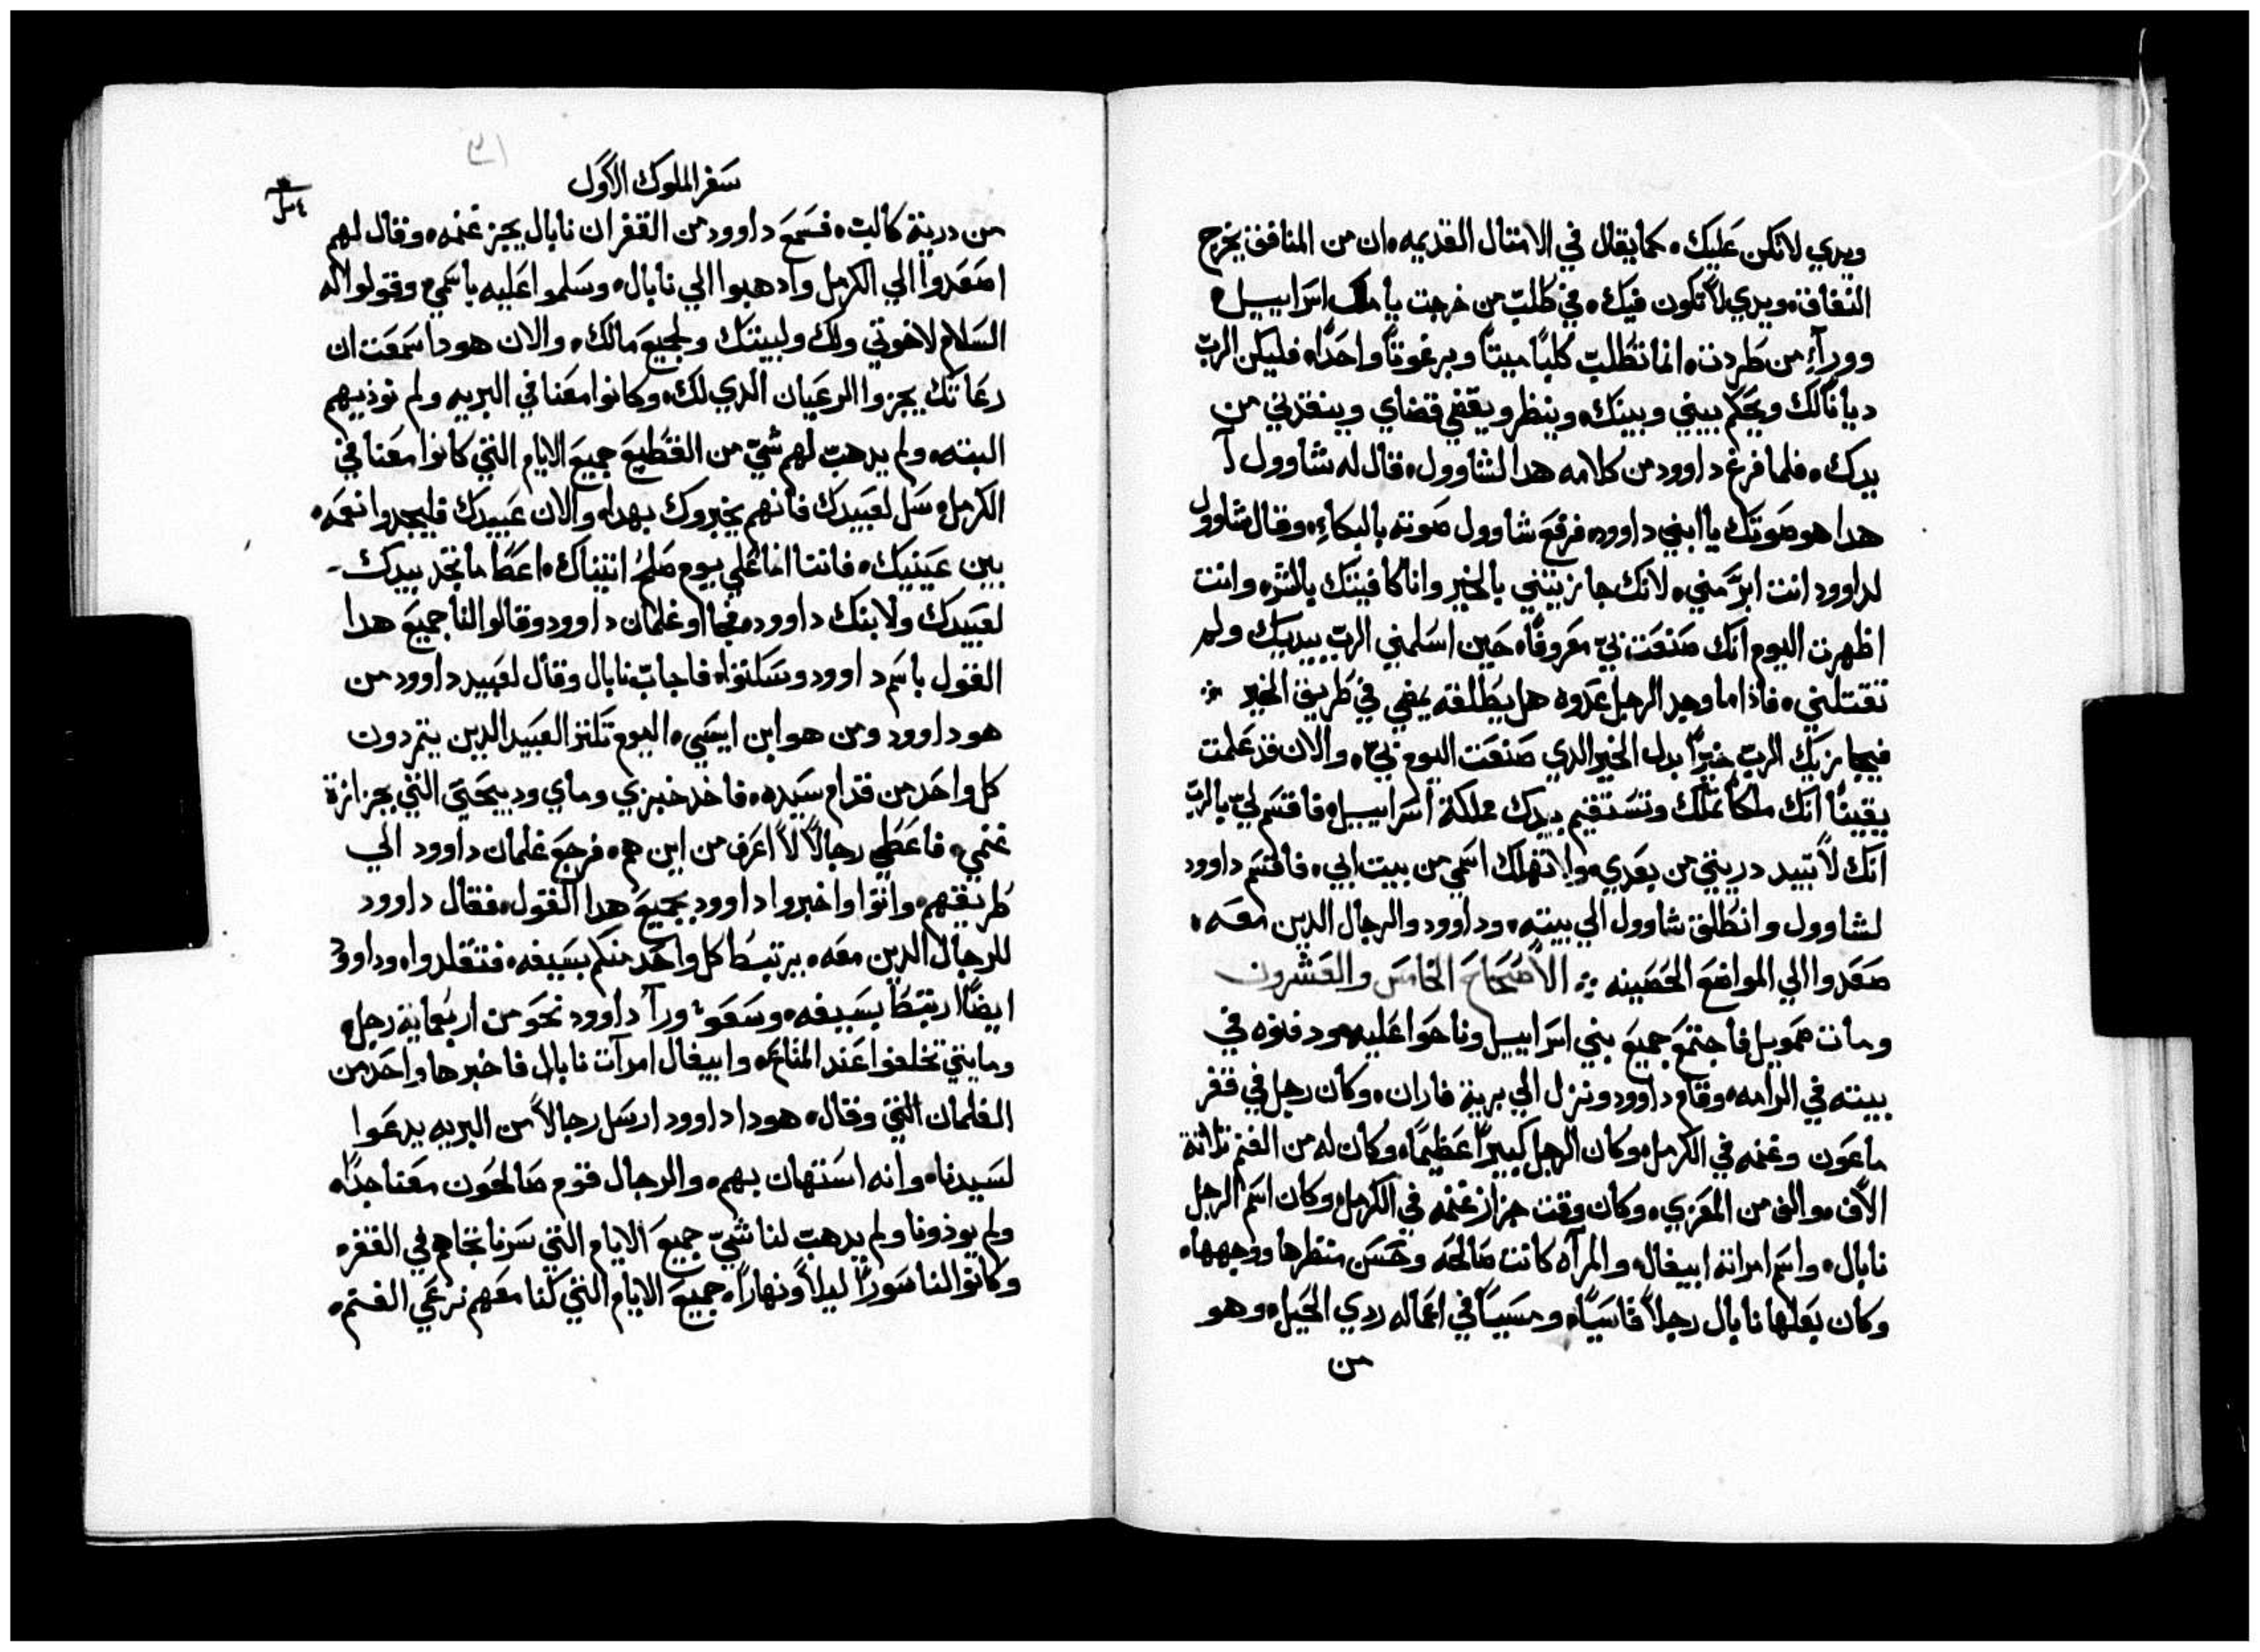 ويدي لاتكن عليك. كما يقال في الامثال القديمه. ان من المنافق يخرج
النفاق. ويدي لا تكون فيك. في طلب من خرجت يا ملك اسراييل.
ووراء من طردت. انما تطلب كلبًا ميتًا وبرغوتًا واحدًا. فليكن الرب
ديانًا لك ويحكم بيني وبينك. وينظر ويقضي قضاي وينقذني من
يدك. فلما فرغ داوود من كلامه هدا لشاوول. قال له شاوول أ
هدا هو صوتك يا ابني داوود. فرفع شاوول صوته بالبكاء. وقال شاوول
لداوود انت ابرّ مني. لانك جازيتني بالخير وانا كافيتك بالشر. وانت
اظهرت اليوم انك صنعت بيّ معروفًا. حين اسلمني الرب بيديك ولم
تقتلني. فاذا ما وجد الرجل عدوه هل يطلقه يمضي في طريق الخير
فيجازيك الرب خيرًا بدل الخير الدي صنعت اليوم بيّ. والان قد علمت
يقينًا انك ملكًا تملك وتستقيم بيدك مملكة اسراييل. فاقسم ليّ بالرب
انك لا تبيد دريتي من بعدي. ولا تهلك اسمي من بيت ابي. فاقسم داوود
لشاوول وانطلق شاوول الي بيته. وداوود والرجال الدين معه.
صعدوا الي المواضع الحصينه ❖ الاصحاح الخامس والعشرون
ومات صمويل فاجتمع جميع بني اسراييل وناحوا عليه ودفنوه في
بيته في الرامه. وقام داوود ونزل الي برية فاران. وكان رجل في قفر
ماعون وغنمه في الكرمل. وكان الرجل كبيرًا عظيمًا. وكان له من الغنم تلاتة
الاف. والف من المعزي. وكان وقت جزاز غنمه في الكرمل. وكان اسم الرجل
نابال. واسم امراته ابيغال. والمرآه كانت صالحه وحسن منظرها ووجهها.
وكان بعلها نابال رجلاً قاسيًا. ومسيًا في اعماله ردي الحيل. وهو
من
سفر الملوك الاول
من درية كالب. فسمع داوود من القفر ان نابال يجز غنمه. وقال لهم
اصعدوا الي الكرمل وادهبوا الي نابال. وسلموا عليه باسمي. وقولوا له
السلام لاخوتي ولك ولبيتك ولجميع مالك. والان هودا سمعت ان
رعاتك يجزوا الرعيان الدي لك. وكانوا معنا في البريه ولم نوذيهم
البته. ولم يدهب لهم شيّ من القطيع جميع الايام التي كانوا معنا في
الكرمل. سل لعبيدك فانهم يخبروك بهدا. والان عبيدك فليجدوا نعمه.
بين عينيك. فانتا انما علي يوم صلح اتيناك. اعطا ما تجد بيدك
لعبيدك ولابنك داوود. فجااو غلمان داوود وقالوا لنا جميع هدا
القول باسم داوود وسكتوا. فاجاب نابال وقال لعبيد داوود من
هو داوود ومن هو ابن ايسي. اليوم تكتر العبيد الدين يتمردون
كل واحد من قدام سيده. فاخد خبزي وماي ودبيحتي التي بجزازة
غنمي. فاعطي رجالاً لا اعرف من اين هم. فرجع غلمان داوود الي
طريقهم. واتوا واخبروا داوود بجميع هدا القول. فقال داوود
للرجال الدين معه. يرتبط كل واحد منكم بسيفه. فتقلدوا. وداوود
ايضًا ارتبط بسيفه. وسعوا ورآ داوود نحو من اربعماية رجل.
ومايتي تخلفوا عند المتاع. وابيغال امرآت نابال فاخبرها واحد من
الغلمان التي وقال. هودا داوود ارسل رجالاً من البريه يدعوا
لسيدنا. وانه استهان بهم. والرجال قوم صالحون معنا جدًا.
ولم يوذونا ولم يدهب لنا شيّ جميع الايام التي سرنا تجاههم في القفر.
وكانوا لنا سورًا ليلاً ونهارًا. جميع الايام التي كنا معهم نرعي الغنم.